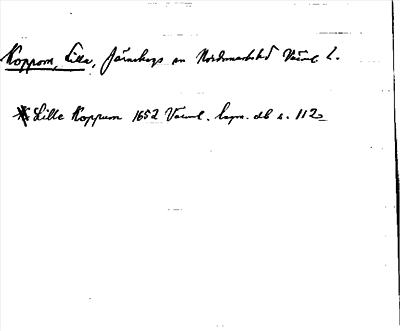 Koppom, Lilla, Järnskogs sn Nordmarks hd Värml l.
Lille Koppum 1652 Värml. lagm. db s. 112